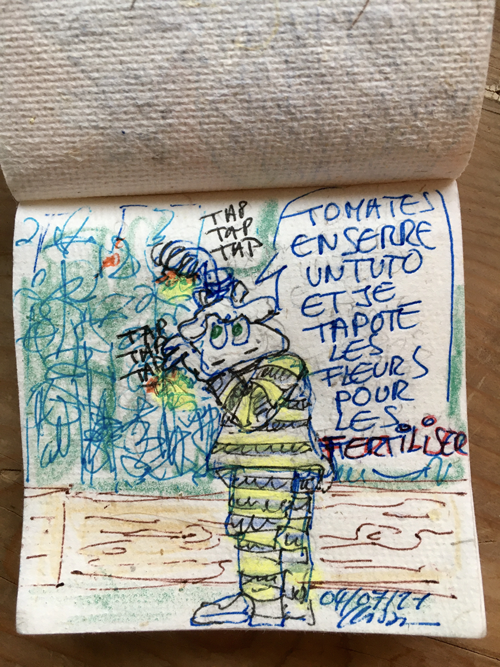 TAP
TAP
TAP
TOMATES
EN SERRE
UN TUTO
ET JE
TAPOTE
LES
FLEURS
POUR
LES
FERTILISER
TAP
TAP
TAP
04/07/21